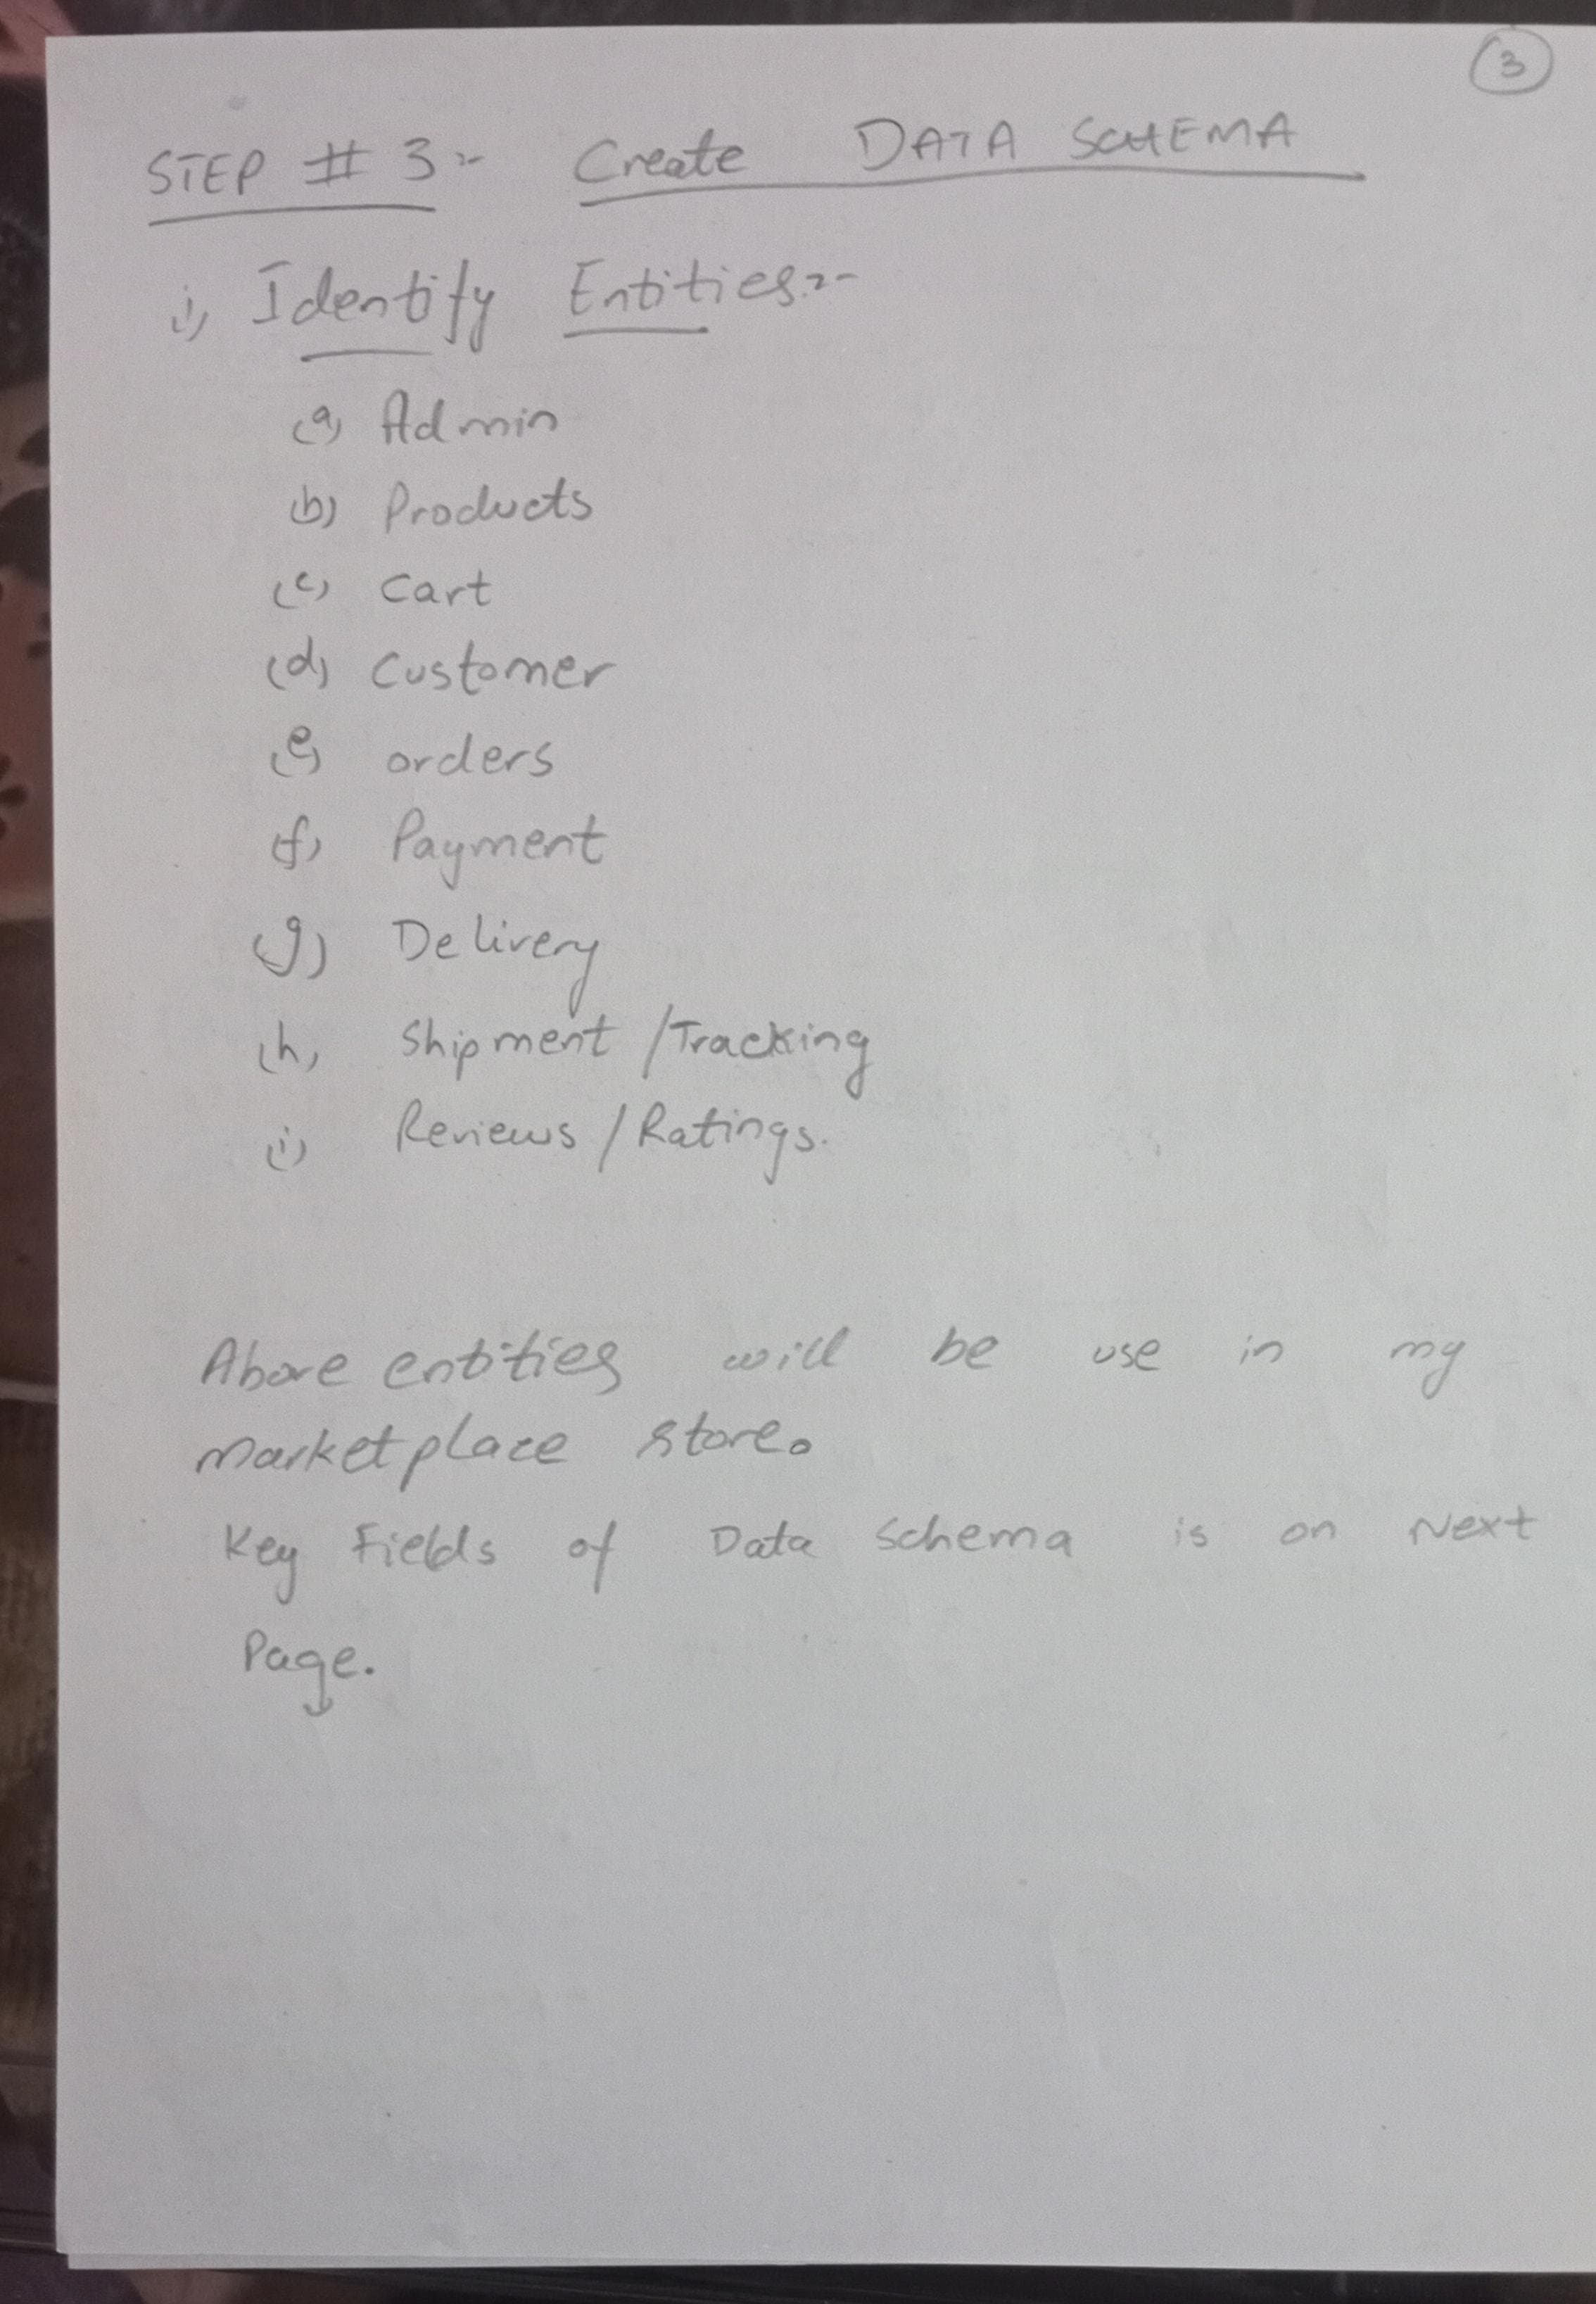 3
STEP # 3:- Create DATA SCHEMA
i) Identify Entities:-
(a) Admin
(b) Products
(c) Cart
(d) Customer
(e) orders
(f) Payment
(g) Delivery
(h) Shipment /Tracking
(i) Reviews / Ratings.
Above entities will be use in my
marketplace store.
Key Fields of Data Schema is on Next
Page.